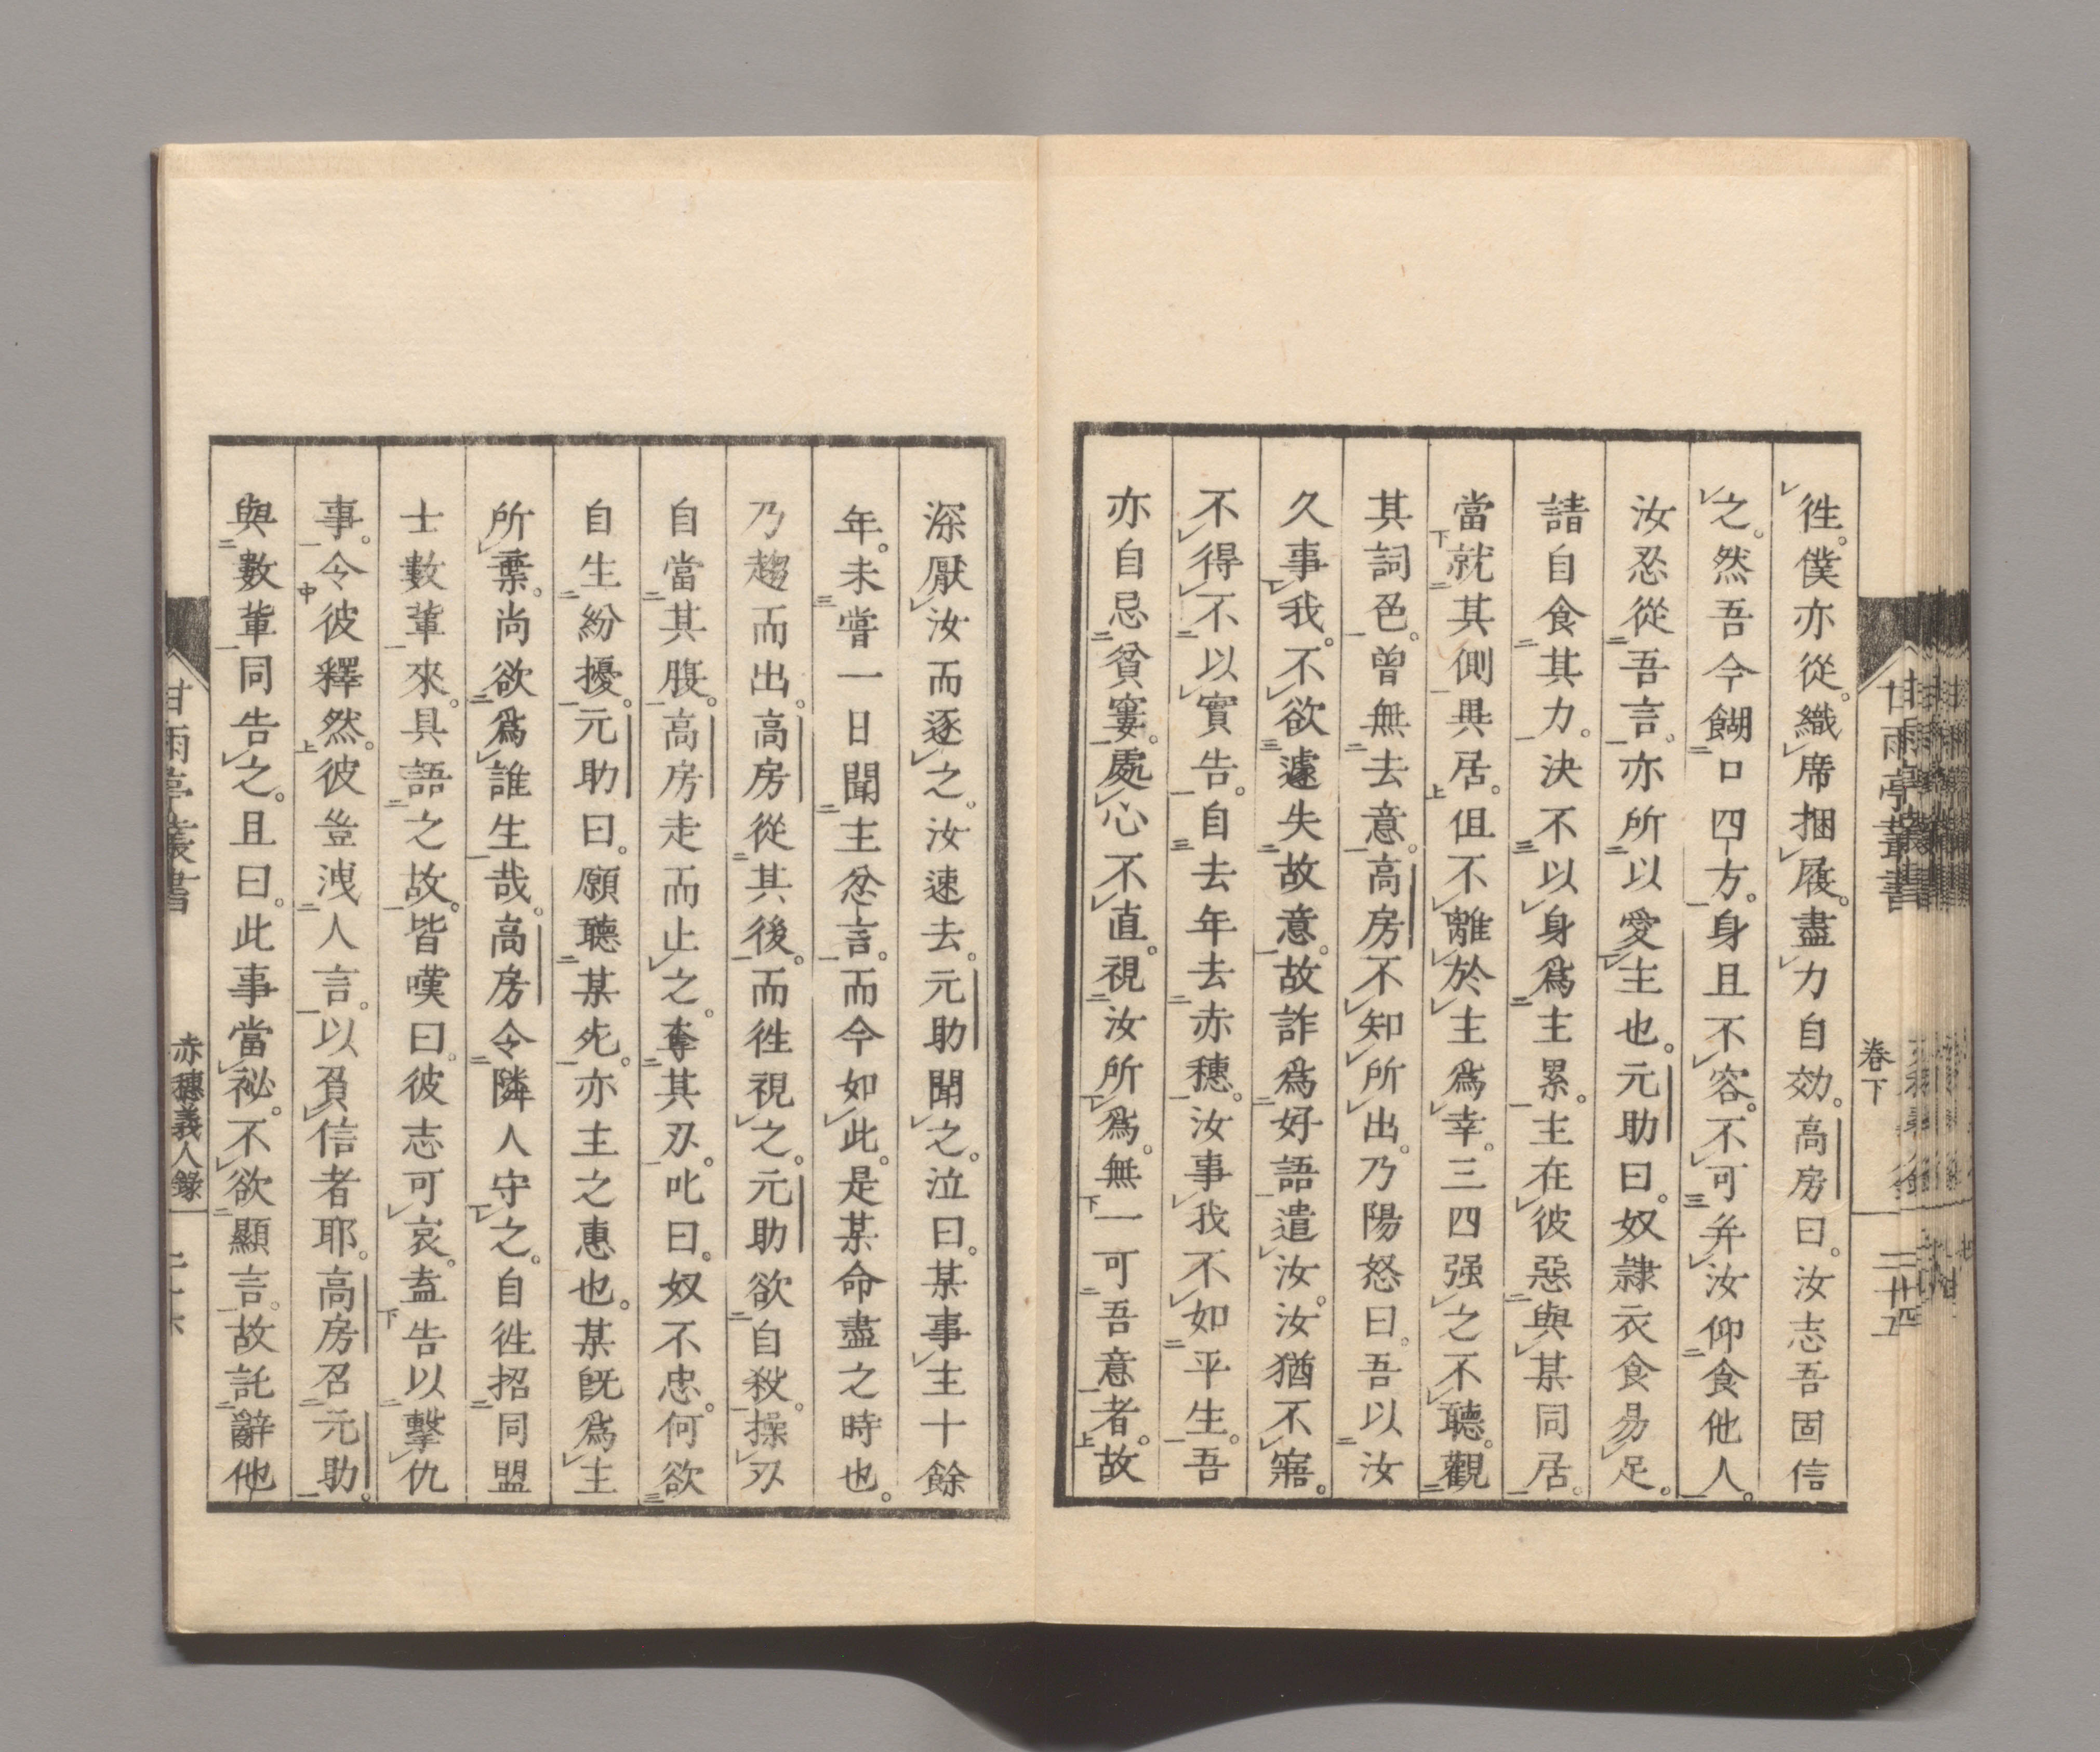 徃。僕亦從。織席捆履。盡力自効。高房曰。汝志吾固信
之。然吾今餬口四方。身且不容。不可弁汝仰食他人。
汝忍從吾言。亦所以愛主也。元助曰。奴隷衣食易足。
請自食其力。決不以身爲主累。主在彼惡與某同居。
當就其側與居。但不離於主爲幸。三四强之不聽。觀
其詞色。曾無去意。高房不知所出。乃陽怒曰。吾以汝
久事我。不欲遽失故意。故詐爲好語遣汝。汝猶不寤。
不得不以實告。自去年去赤穗。汝事我不如平生。吾
亦自忌貧窶。處心不直。視汝所爲。無一可吾意者。故
甘雨亭叢書
卷下
二十五
深厭汝而逐之。汝速去。元助聞之。泣曰。某事主十餘
年。未嘗一日聞主忿言。而今如此。是某命盡之時也。
乃趨而出。高房從其後。而徃視之。元助欲自殺。操刄
自當其腹。高房走而止之。奪其刄。叱曰。奴不忠。何欲
自生紛擾。元助曰。願聽某死。亦主之惠也。某旣爲主
所棄。尚欲爲誰生哉。高房令隣人守之。自徃招同盟
士數輩來。具語之故。皆嘆曰。彼志可哀。盍告以擊仇
事。令彼釋然。彼豈洩人言。以負信者耶。高房召元助。
與數輩同告之。且曰。此事當祕。不欲顯言。故託辭他
甘雨亭叢書
赤穗義人錄